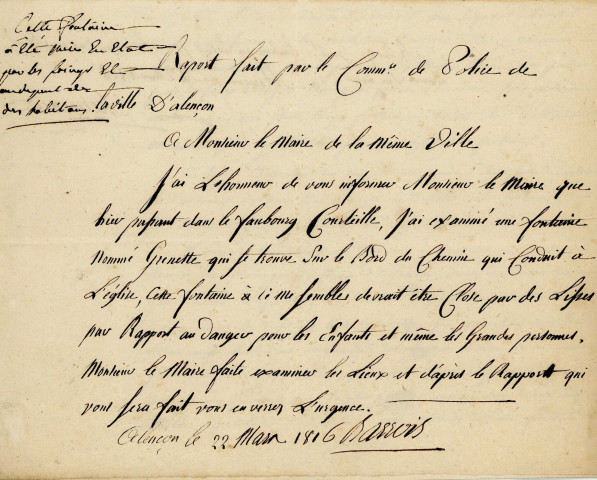 Cette fontaine
a été mise en état
par les soings et
au depent des
des habitans.
Raport fait par le Commre. de Police de
la ville D'alençon
A Monsieur le Maire de la même Ville
J'ai L'ehonneur de vous informer Monsieur le Maire que
hier passant dans le faubourg Courteille, J'ai examiné une fontaine
nommé Grenette qui se trouve sur le Bord du Chemin qui Conduit à
L'église, Cette fontaine à ce me semble devrait être Close par des Lisses
par Rapport au danger pour les Enfants et même les Grandes personnes.
Monsieur le Maire faite examiner les Lieux et d'après le Rapport qui
vous sera fait vous en verrez L'urgence.
Alençon le 22 Mars 1816 Barrois